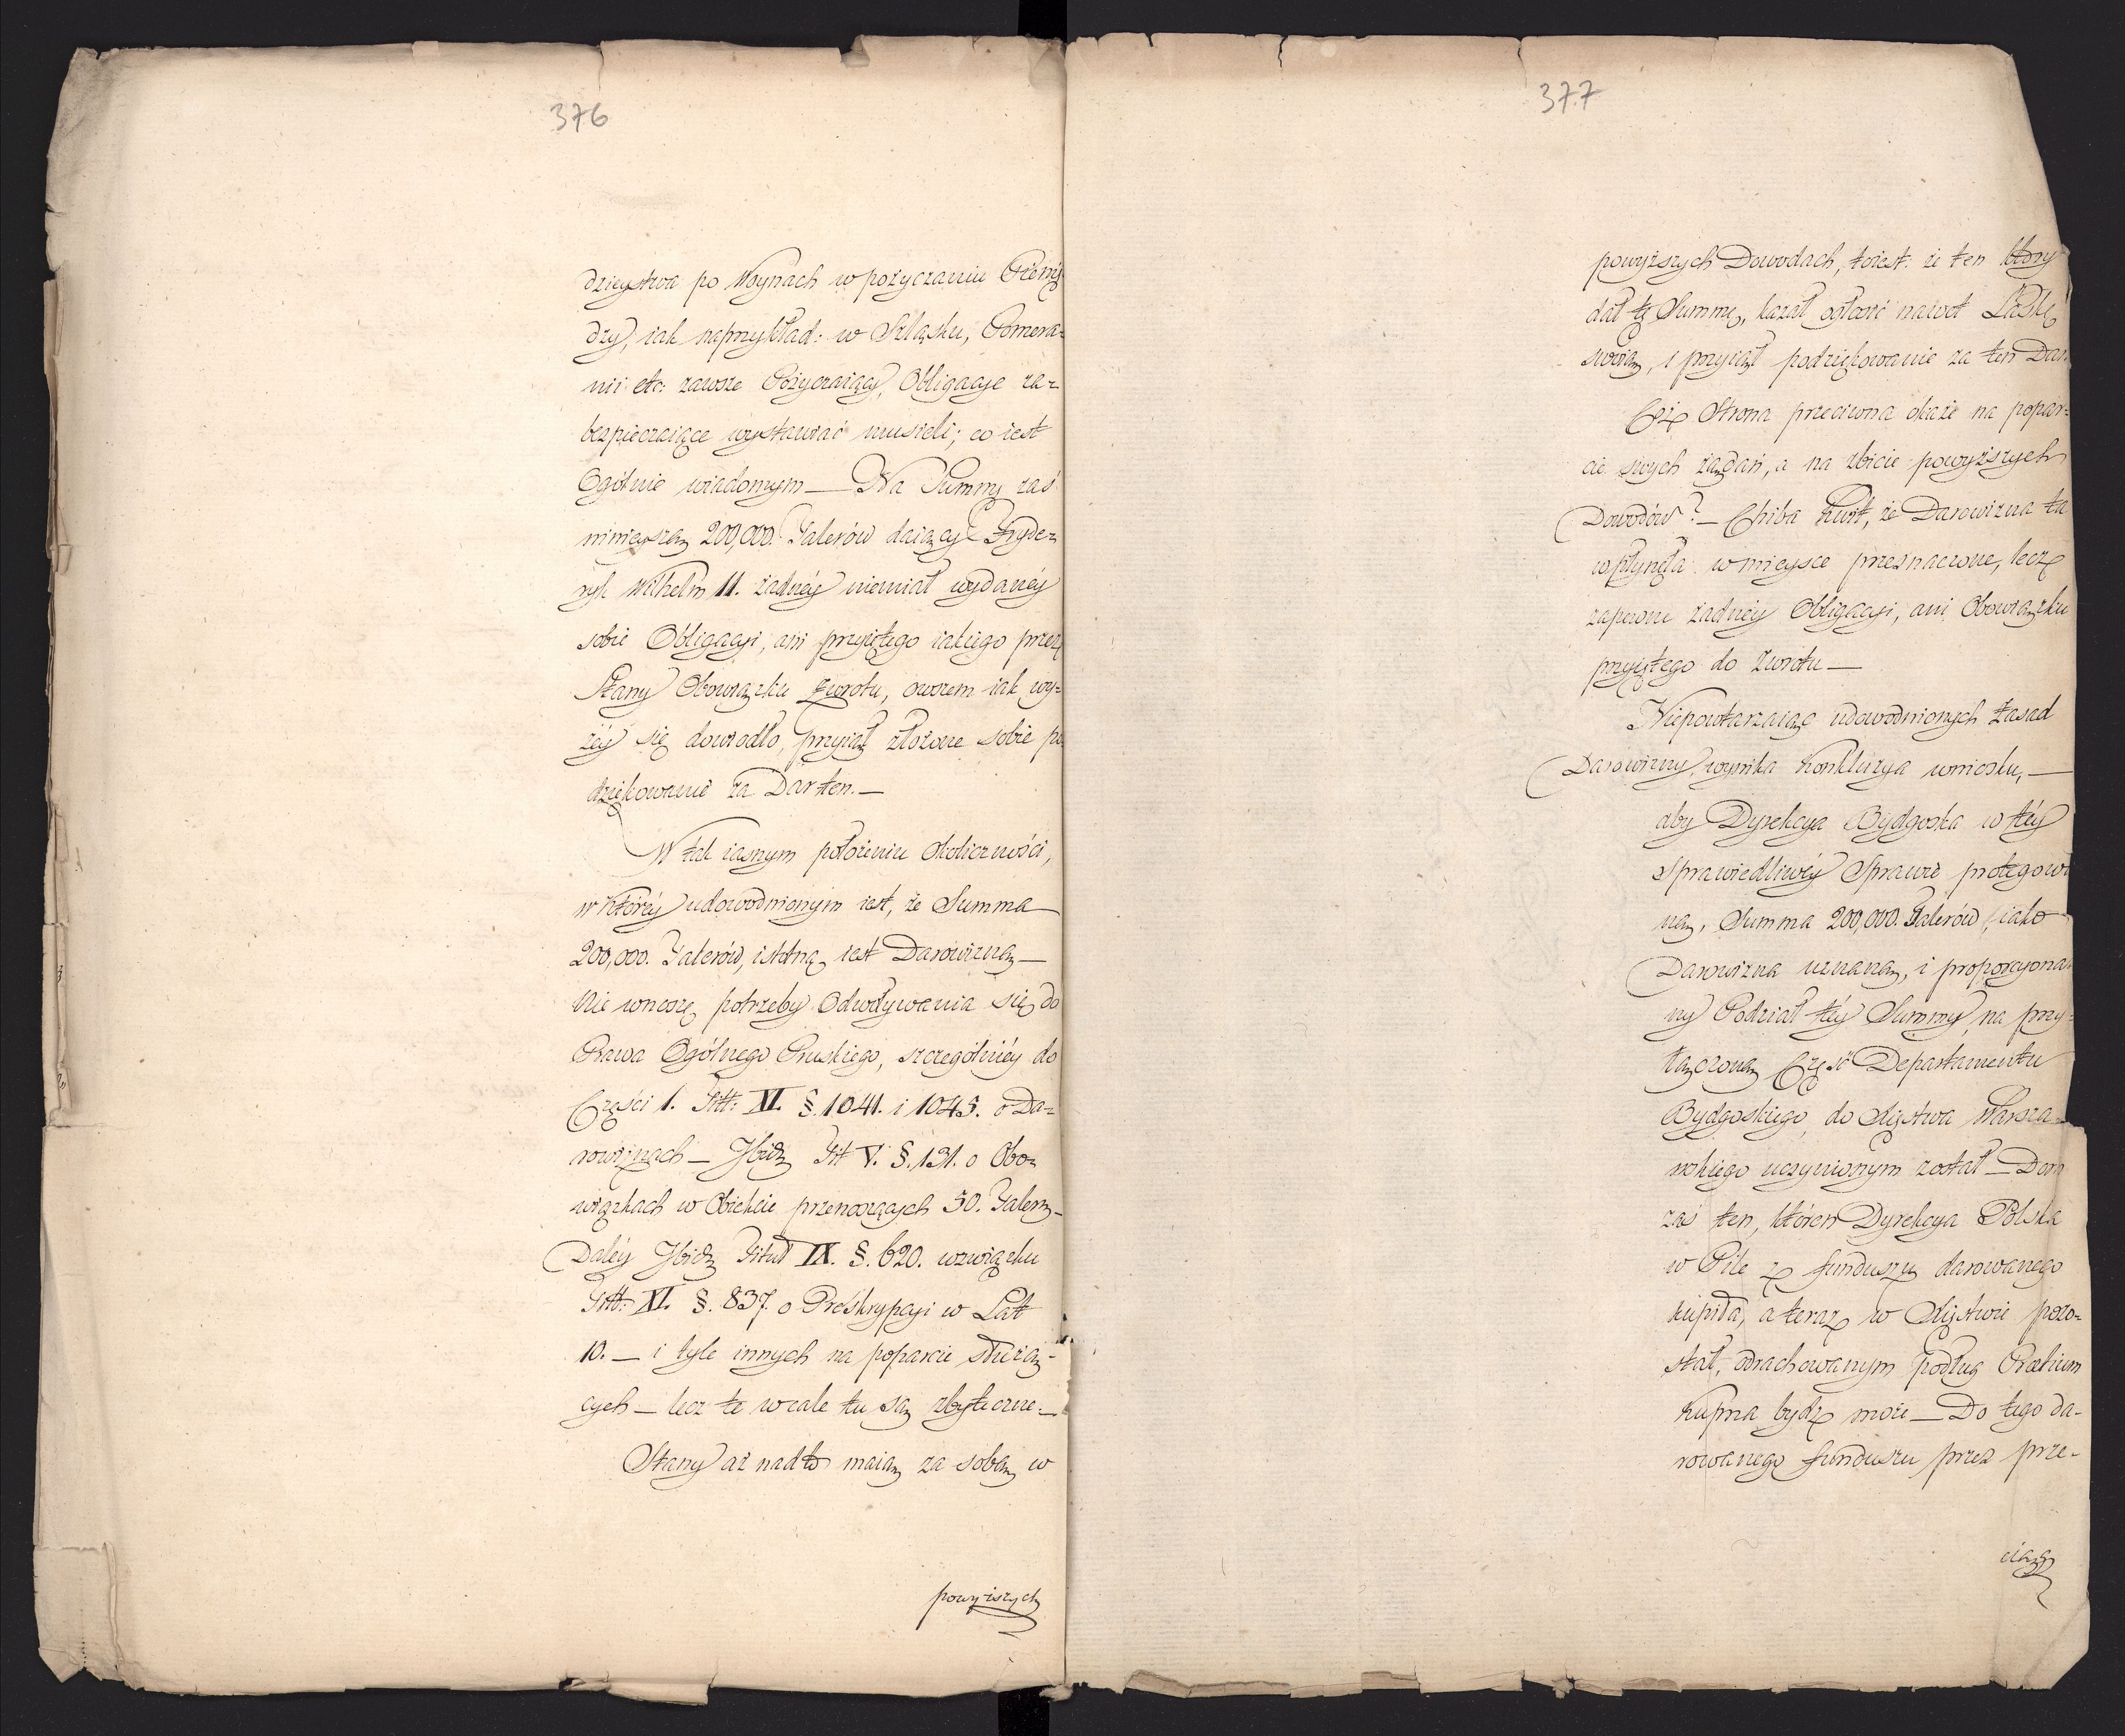 376
dzieystwa po Woynach w pożyczaniu Pienię
dzy, iak naprzykład: w Szląsku, Pomera=
nii etc: zawsze Pożyczaiący, Obligacye za=
bezpieczaiące wystawiać musieli; co iest
Ogólnie wiadomym — Na Summę zaś
ninieyszą 200,000. Talerów daiący Fryde=
ryk Wilhelm II. żadnéy niemiał wydanéy
sobie Obligacyi, ani przyiętego iakiego przez
Stany Obowiązku zwrotu, owszem iak wy=
żéy się dowiodło, przyiął złożone sobie po
dziękowanie za Dar ten. —
W tak iasnym położeniu Okoliczności,
w któréy udowodnionym iest, że Summa
200,000. Talerów, istotną iest Darowizną —
Nie wnoszę potrzeby Odwoływania się do
Prawa Ogólnego Pruskiego, szczególniéy do
Części 1. Titt: XI. §. 1041. i 1045. o Da=
rowiznach — Ibid Tit V. §. 131. o Obo=
wiązkach w Obiekcie przenoszących 50. Talerz —
Daléy Ibid Titul IX. §. 620. w związku
Titt: XI. §. 837. o Preskrypcyi w Lat
10. — i tyle innych na poparcie służą=
cych — lecz te wcale tu są zbyteczne. —
Stany aż nadto maią za sobą w
powyższych
377
powyższych Dowodach, toiest: że ten który
dał tę Summę, kazał ogłosić nawet Łaskę
swoią, i przyiął podziękowanie za ten Dar.
Cóż Strona przeciwna okaże na popar=
cie swych żądań, a na zbicie powyższych
Dowodów? — Chiba Kwit, że Darowizna ta
wpłynęła w mieysce przeznaczone, lecz
zapewne żadnéy Obligacyi, ani Obowiązku
przyiętego do zwrotu —
Niepowtarzaiąc udowodnionych Zasad
Darowizny, wynika Konkluzya wniosku, —
aby Dyrekcya Bydgoska w téy
Sprawiedliwéy Sprawie protegowa
ną, Summa 200,000. Talerów, iako
Darowizna uznaną, i proporcyonal
ny Podział téy Summy, na przy=
łączoną Część Departamentu
Bydgoskiego, do Xięstwa Warsza=
wskiego uczynionym został — Dom
zaś ten, któren Dyrekcya Polska
w Pile z funduszu darowanego
kupiła, a teraz w Xięstwie pozo=
stał, odrachowanym podług Pretium
Kupna bydź może — Do tego da=
rowanego funduszu przez prze=